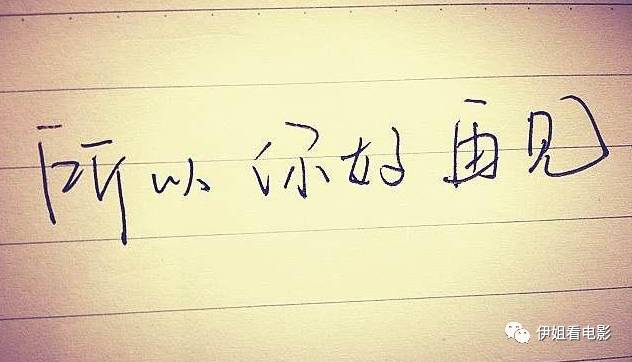 所以 你好 再见
伊姐看电影